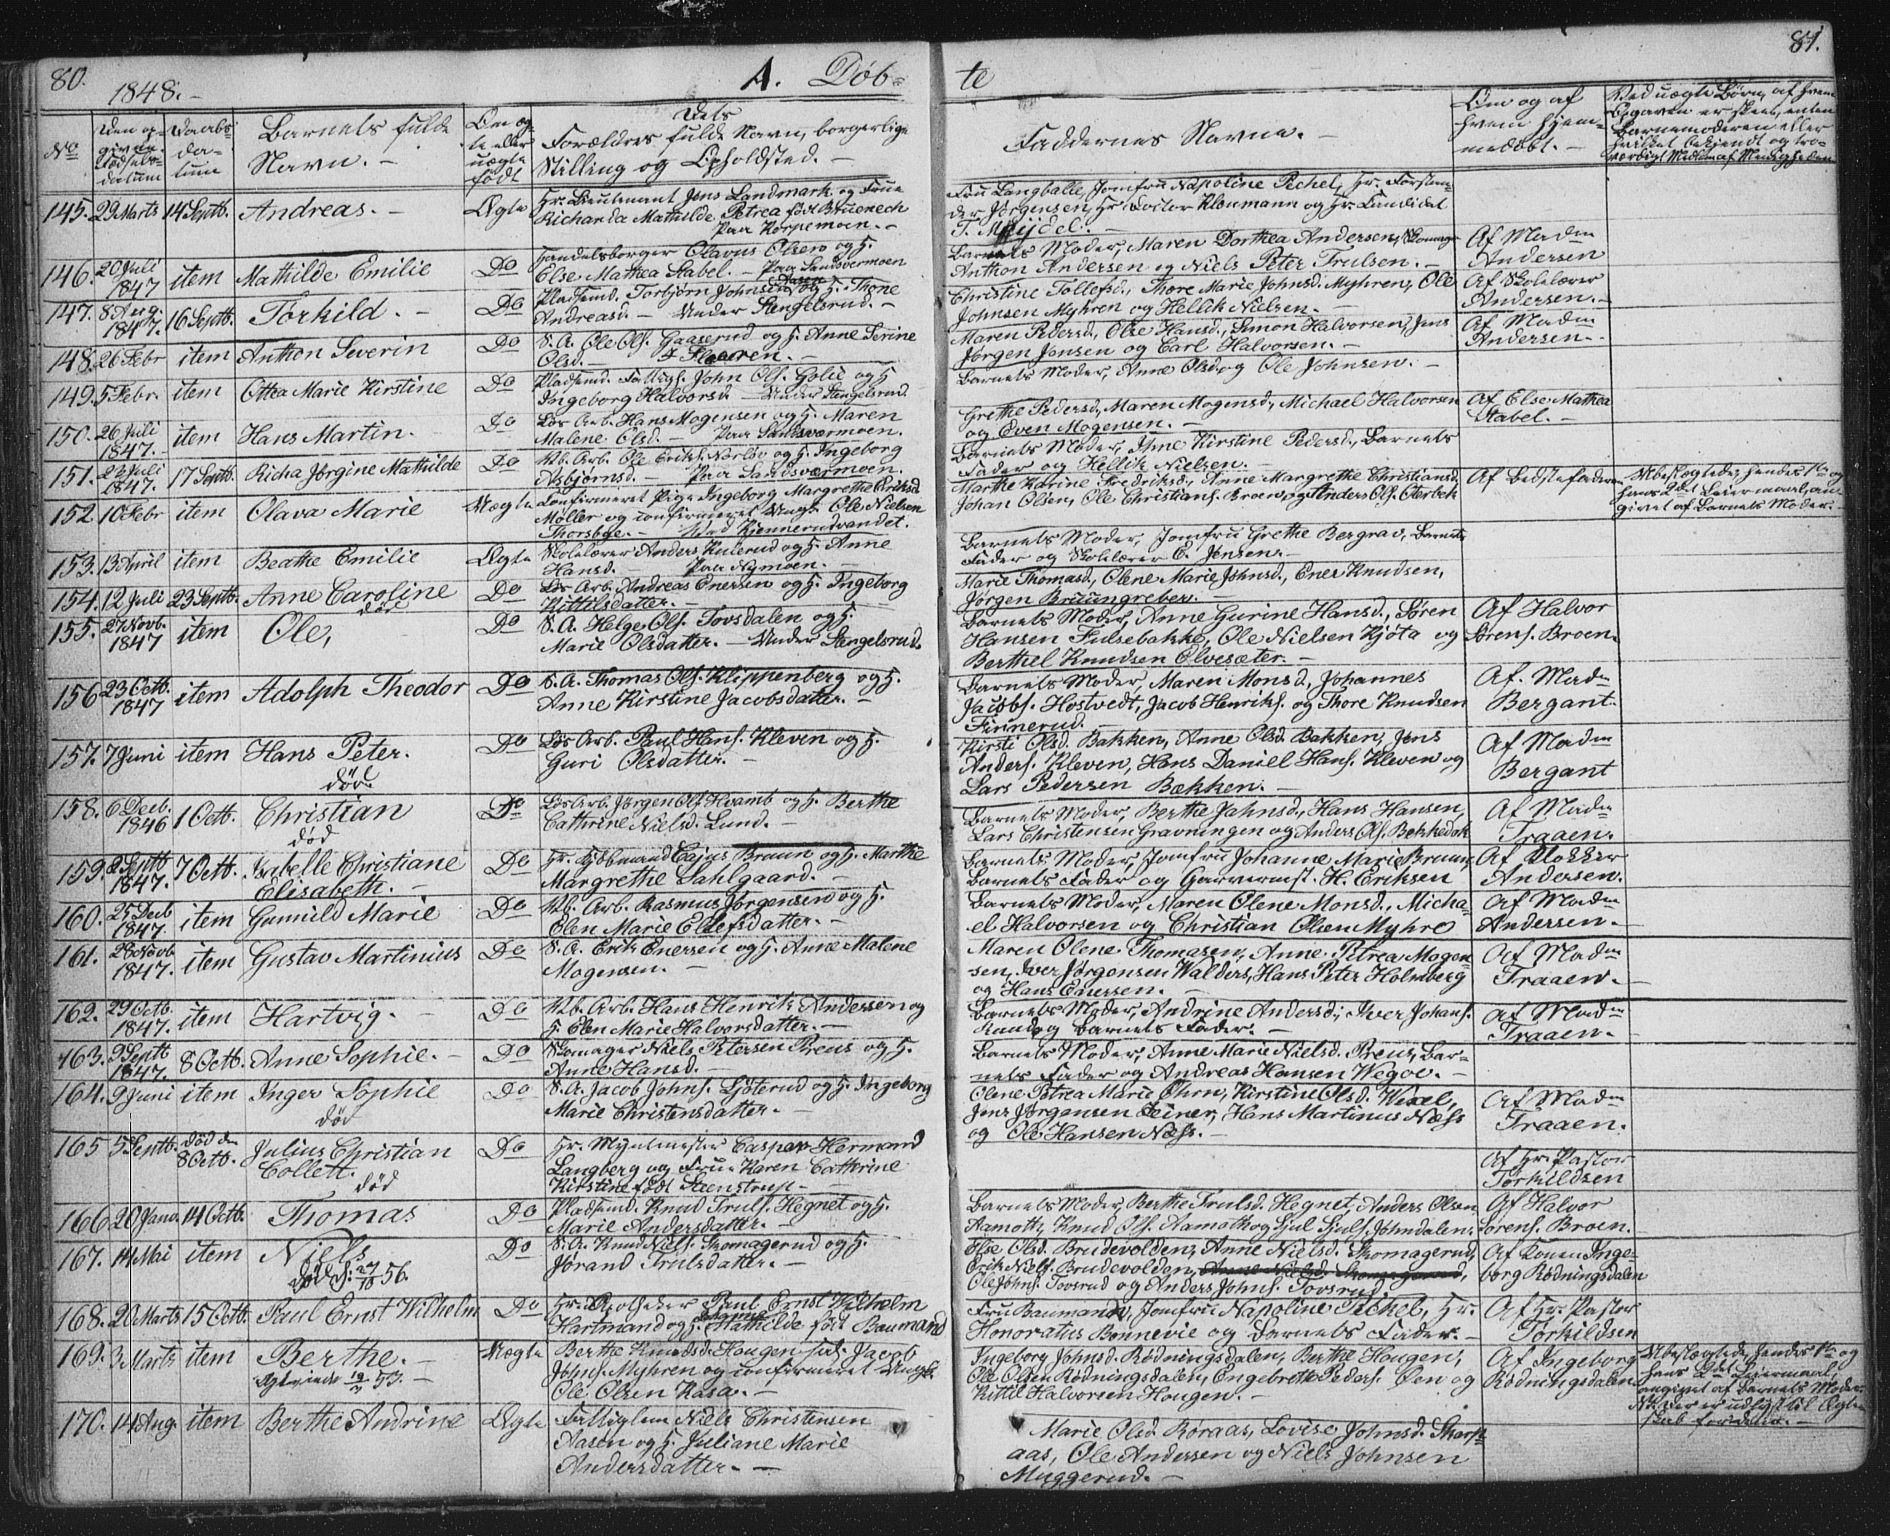 80.
1848.
A. Døb-
te
81.
No
Barnets fulde
Navn.
Forældres fulde Navn, borgerlige
Stilling og Opholdsted.
Faddernes Navne.
Om og af
hvem hjem-
medøbt.
145. 29 Marts 14 Septb. Andreas. Ægte Hr. Lieutenant Jens Landmark og Frue
Richarda Mathilde Petrea født Bruenech
Paa Korpemoen.
Fru Langballe, Jomfru Napoline Pichel, Hr. Forstan-
der Jørgensen, Hr. Doctor Kloumann og Hr. Candidat
T. Meydel.
146. 20 Juli 1847 item Mathilde Emilie Do Handelsborger Olavus Olsen og H.
Else Mathea Stabel. Paa Sandsværmoen
Barnets Moder, Maren Dorthea Andersen,
Anthon Andersen og Niels Peter Trulsen.
Af Madm
Andersen
147. 8 Aug. 1847. 16 Septb. Torkild. Do Pladsmd. Torbjørn Johnsen og H. Thone
Andreasd. Under Stengelsrud.
Christine Tollefsd, Thore Marie Johnsd. Myhren, Ole
Johnsen Myhren og Hellik Nielsen.
Af Skolelærer
Andersen.
148. 26 Febr item Anthon Severin Do S. A. Ole Ols. Gaaserud og H. Anne Serine
Olsd.
Maren Pedersd, Else Hansd, Simon Halvorsen, Jens
Jørgen Jensen og Carl Halvorsen.
Af Madm
Andersen.
149. 5 Febr. item Ottea Marie Kirstine Do Pladsmd. Fattigf. John Ols. Golie og H
Ingeborg Halvorsd. Under Stengelsrud.
Barnets Moder, Anne Olsd og Ole Johnsen.
150. 26 Juli 1847. item Hans Martin. Do Løs Arb. Hans Mogensen og H. Maren
Malene Olsd. Paa Sandsværmoen.
Grethe Pedersd, Maren Mogensd, Michael Halvorsen
og Even Mogensen.
Af Else Mathea
Stabel.
151. 23 Juli 1847. 17 Septb. Richa Jørgine Mathilde Do Vb. Arb. Ole Eriks. Narlov og H. Ingeborg
Asbjørnsd. Paa Sandsværmoen.
Barnets Moder, Anne Kirstine Pedersd, Barnets
Fader og Hellik Nielsen.
152. 10 Febr item Olava Marie Uægte Confirmeret Pige Ingeborg Margrethe Eriksd
Møller og confirmeret Ungk. Ole Nielsen
Thorsbye. Ved Kjennerudvandet.
Marthe Karine Fredriksd., Anne Margrethe Christiansd,
Johan Olsen, Ole Christians. Broen og Anders Ols. Sterbek
Af Bedstefaderen
Ubeslægtede, hendes 1ste og
hans 2det Leiermaal, an-
givet af Barnets Moder.
153. 13 April item Beathe Emilie Ægte Skolelærer Anders Kulerud og H. Anne
Hansd. Paa Nymoen.
Barnets Moder, Jomfru Grethe Bergrav, Barnets
Fader og Skolelærer C. Jensen.
154. 12 Juli 23 Septb. Anne Caroline død Do Løs Arb. Andreas Enersen og H. Ingeborg
Kittilsdatter.
Marie Thomasd., Olene Marie Johnsd., Ener Knudsen,
Jørgen Bruungreber.
155. 27 Novb. 1847 item Ole, Do S. A. Helge Ols. Tovsdalen og H.
Marie Olsdatter. Under Stengelsrud.
Barnets Moder, Anne Gurine Hansd., Søren
Hansen Fulsebakke, Ole Nielsen Kjøta og
Berthel Knudsen Olvesæter.
Af Halvor
Sørens. Broen.
156 23 Octb. 1847 item Adolph Theodor Do S. A. Thomas Ols. Klippenberg og H.
Anne Kirstine Jacobsdatter.
Barnets Moder, Maren Monsd, Johannes
Jacobs. Hostvedt, Jacob Henriks. og Thore Knudsen
Finnerud.
Af. Madm
Bergant.
157. 7 Juni item Hans Peter. død Do Løs Arb. Paul Hans. Kleven og H.
Guri Olsdatter.
Kirsti Olsd. Bakken, Anne Olsd. Bakken, Jens
Anders. Kleven, Hans Daniel Hans. Kleven og
Lars Pedersen Bækken.
Af Madm
Bergant
158. 6 Decb. 1846 1 Octb. Christian død Do Løs Arb. Jørgen Ols. Hvamb og H. Berthe
Cathrine Nielsd. Lund.
Barnets Moder, Berthe Jahnsd., Hans Hansen,
Lars Christensen Gravningen og Anders Ols. Bekkedok
Af Madm
Traaen.
159. 2 Septb 1847. 7 Octb. Isabelle Christiane
Elisabeth. Do Hr. Kjøbmand Cajus Bruun og H. Marthe
Margrethe Dahlgaard.
Barnets Moder, Jomfru Johanne Marie Bruun,
Barnets Fader og Garvermest. H. Eriksen
Af Klokker
Andersen.
160. 25 Decb 1847. item Gunnild Marie Do Vb. Arb. Rasmus Jørgensen og H.
Elen Marie Ellefsdatter.
Barnets Moder, Maren Olene Monsd., Micha-
el Halvorsen og Christian Olsen Myhre
Af Madm
Andersen.
161. 28 Novb 1847. item Gustav Martinius Do S. A. Erik Enersen og H. Anne Malene
Mogensen.
Maren Olene Thomasen, Anne Petrea Mogen-
sen, Iver Jørgensen Walders, Hans Peter Holmberg
og Hans Enersen.
Af Madm
Traaen.
162. 29 Octb. 1847. item Hartvig. Do Vb. Arb. Hans Henrik Andersen og
H Elen Marie Halvorsdatter.
Barnets Moder, Andrine Andersd; Iver Johans.
og Barnets Fader.
Af Madm
Traaen.
163. 9 Septb 1847. 8 Octb. Anne Sophie. Do Skomager Niels Petersen Preus og H.
Anne Hansd.
Barnets Moder, Anne Marie Nielsd. Preus, Bar-
nets Fader og Andreas Hansen Wegoe.
164. 9 Juni item Inger Sophie død Do S. A. Jacob Johns. Gjøterud og H. Ingeborg
Marie Christensdatter.
Olene Petrea Marie Øhrn, Kirstine Olsd. Wexel,
Jens Jørgensen Teiner, Hans Martinus Næss
og Ole Hansen Næss.
Af Madm
Traaen.
165 5 Septb. død den 8 Octb. Julius Christian
Collett. død Do Hr. Myntmester Caspar Hermand
Langberg og Frue Karen Cathrine
Kirstine født Steenstrup.
Af Hr. Pastor
Torkildsen
166 20 Janu. 14 Octb. Thomas Do Pladsmd. Knud Truls. Hegnet og H.
Marie Andersdatter.
Barnets Moder, Berthe Trulsd. Hegnet, Anders Olsen
Aamoth, Knud Ols. Aamoth og Gjul Gjuls. Johndalen.
Af Halvor
Sørens. Broen.
167. 14 Mai item Niels død d. 27/10 56. Do S. A. Knud Niels. Skomagerud og H.
Jørand Trulsdatter.
Else Olsd. Brudevolden, Anne Nielsd. Skomagerud,
Erik Niels. Brudevolden, Anne Nielsd. Skomagerud,
Ole Johns. Tovsrud og Anders Johns. Tovsrud.
Af Konen Inge-
borg Rødningsdalen
168. 20 Marts 15 Octb. Paul Ernst Wilhelm Do Hr. Apotheker Paul Ernst Wilhelm
Hartmand og H. Mathilde født Baumand
Fru Baumann, Jomfru Napoline Pichel, Hr.
Honoratus Bonnevie og Barnets Fader.
Af Hr. Pastor
Torkildsen
169. 3 Marts item Berthe. Uægte Berthe Knudsd. Hougen Jacob
Johns. Myhren og confirmeret Ungk.
Ole Olsen Kasa.
Ingeborg Johnsd. Rødningsdalen, Berthe Hougen,
Ole Olsen Rødningsdalen, Engebreth Peders. Øen og
Kittil Halvorsen Hougen.
Af Ingeborg
Rødningsdalen
Ubeslægtede, hendes 1ste og
hans 2det Leiermaal,
angivet af Barnets Moder.
170. 14 Aug. item Berthe Andrine Ægte Fattiglem Niels Christensen
Aasen og H. Juliane Marie
Andersdatter.
Marie Olsd. Røraas, Lovise Johnsd. Skarp-
aas, Ole Andersen og Niels Johnsen
Muggerud.